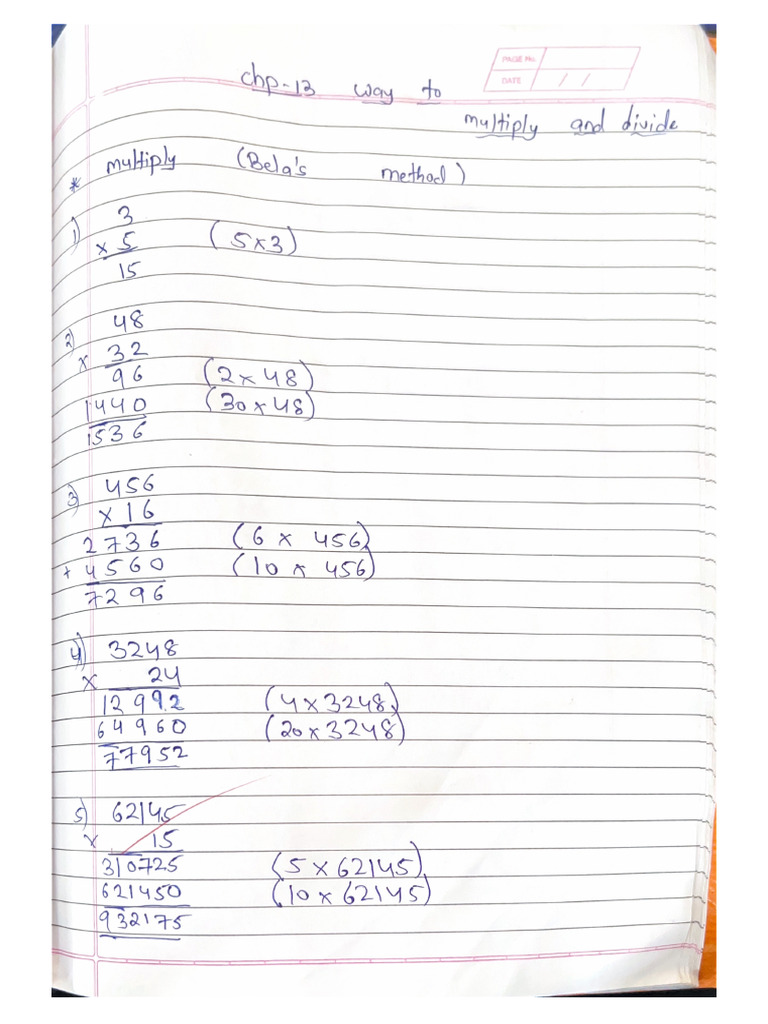 PAGE No.
DATE / /
Chp-13 way to
multiply and divide
* multiply (Bela's method)
1) 3
x 5 (5x3)
15
2) 48
x 32
96 (2 x 48)
1440 (30 x 48)
1536
3) 456
x 16
2736 (6 x 456)
+ 4560 (10 x 456)
7296
4) 3248
x 24
12992 (4 x 3248)
64960 (20 x 3248)
77952
5) 62145
x 15
310725 (5 x 62145)
621450 (10 x 62145)
932175